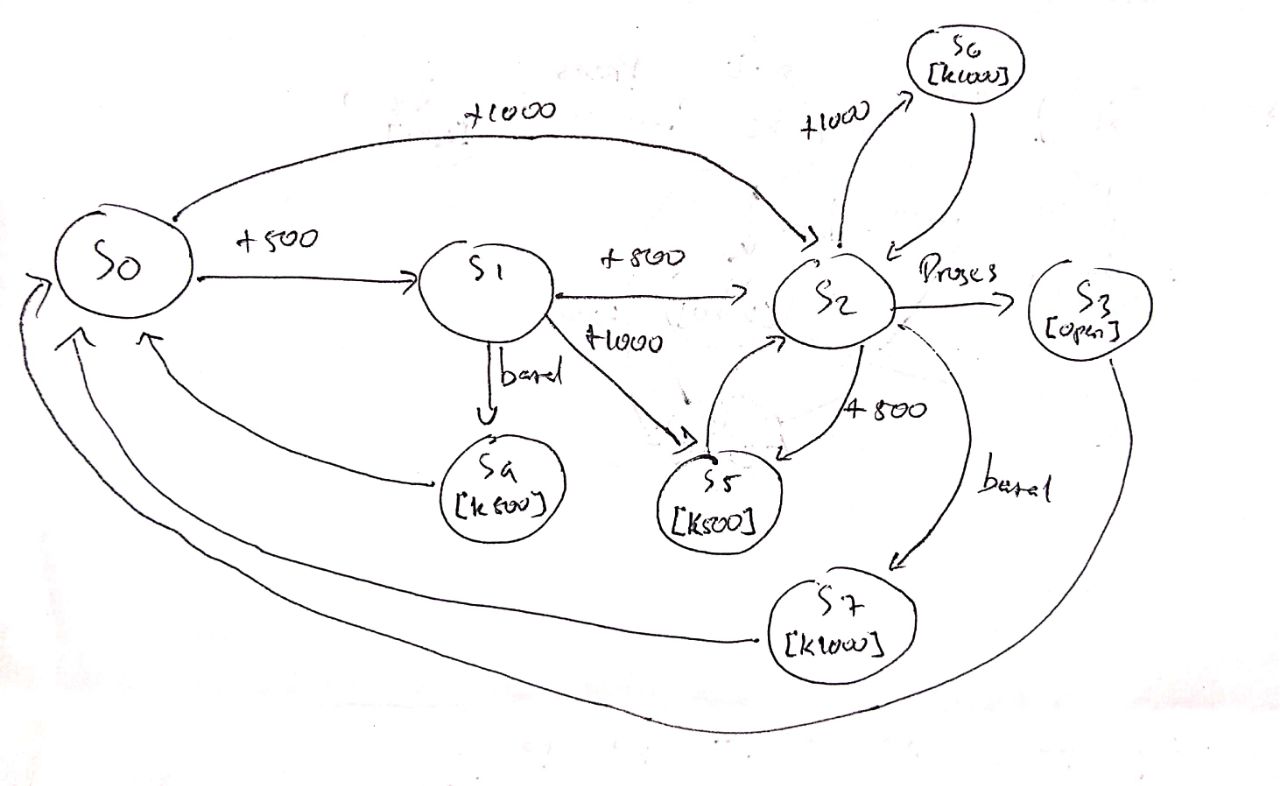 S6
[k1000]
+1000
+1000
S0
+500
S1
+500
S2
Proses
S3
[open]
+1000
batal
+500
S4
[k500]
S5
[k500]
batal
S7
[k1000]